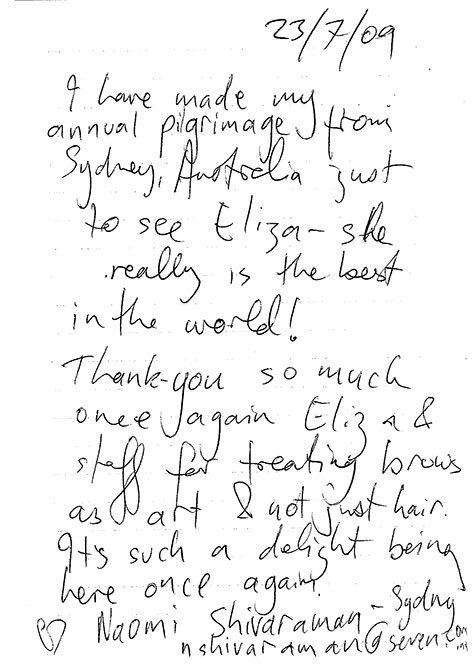 23/7/09
I have made my
annual pilgrimage from
Sydney, Australia just
to see Eliza - she
really is the best
in the world!
Thank-you so much
once again Eliza &
staff for treating brows
as art & not just hair.
It's such a delight being
here once again.
♡ Naomi Shivaraman - Sydney
nshivaraman@seven